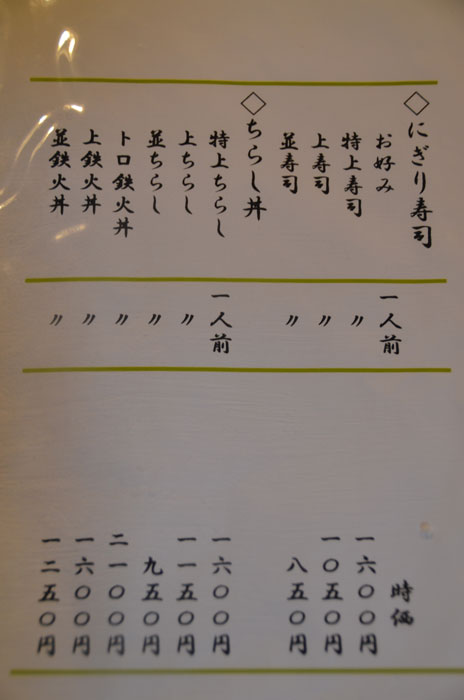 ◇にぎり寿司
お好み 一人前 時価
特上寿司 〃 一六〇〇円
上寿司 〃 一〇五〇円
並寿司 〃 八五〇円
◇ちらし丼
特上ちらし 一人前 一六〇〇円
上ちらし 〃 一一五〇円
並ちらし 〃 九五〇円
トロ鉄火丼 〃 二一〇〇円
上鉄火丼 〃 一六〇〇円
並鉄火丼 〃 一二五〇円